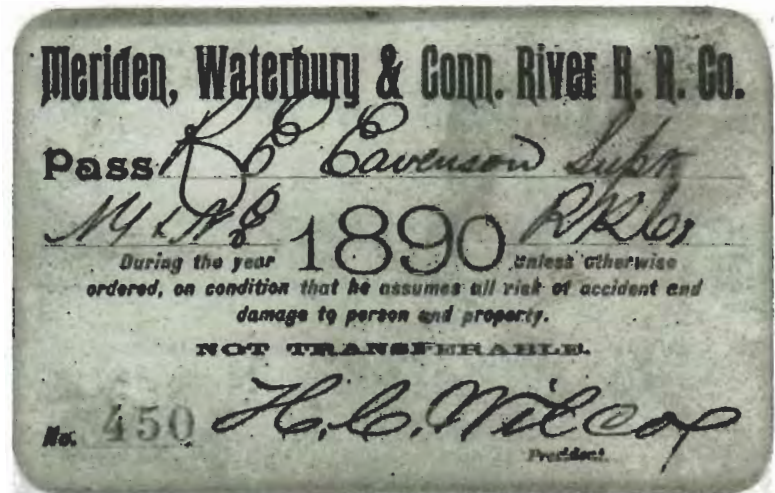 Meriden, Waterbury & Conn. River R. R. Co.
Pass R E Eavenson Supr
NY & NE 1890 RR Co
During the year unless otherwise
ordered, on condition that he assumes all risk of accident and
damage to person and property.
NOT TRANSFERABLE.
No. 450 H. C. Wilcox
President.